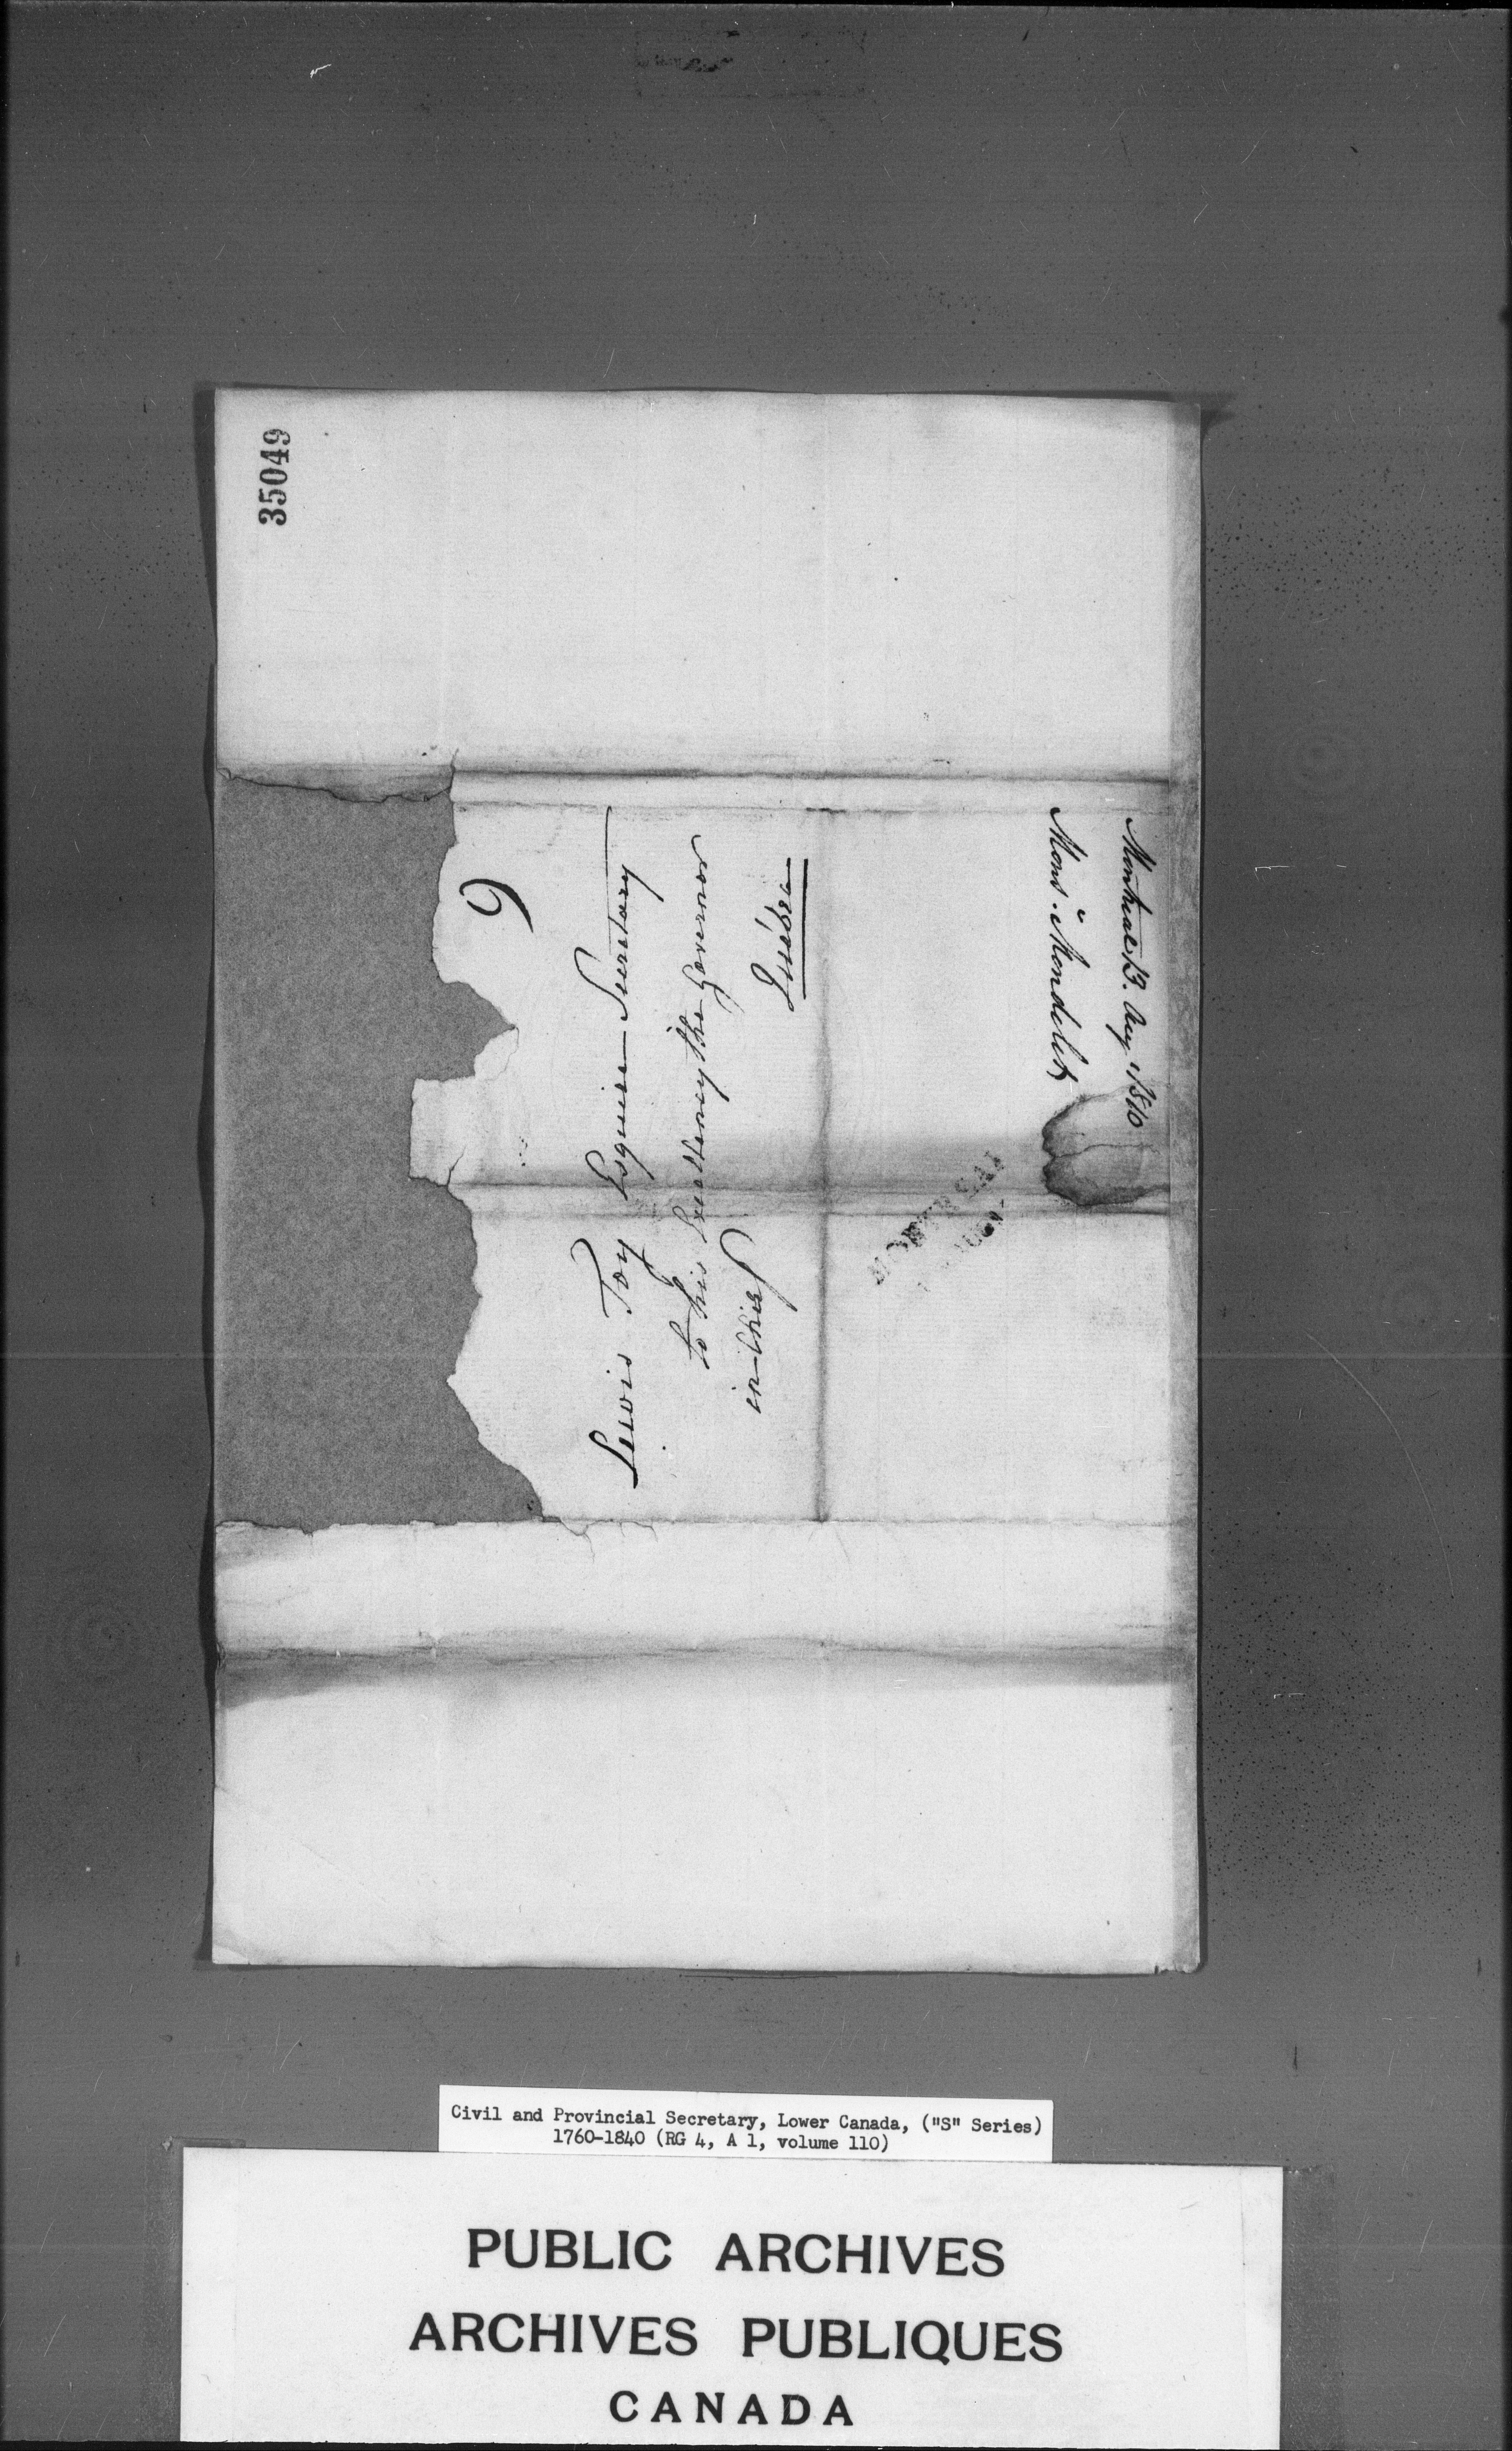 35049
9
Lewis Foy Esquire Secretary
to his Excellency the Governor
in Chief
Québec
MONTREAL
Montreal 13. Aug. 1810
Mons.r Mondelet
Civil and Provincial Secretary, Lower Canada, ("S" Series)
1760-1840 (RG 4, A 1, volume 110)
PUBLIC ARCHIVES
ARCHIVES PUBLIQUES
CANADA